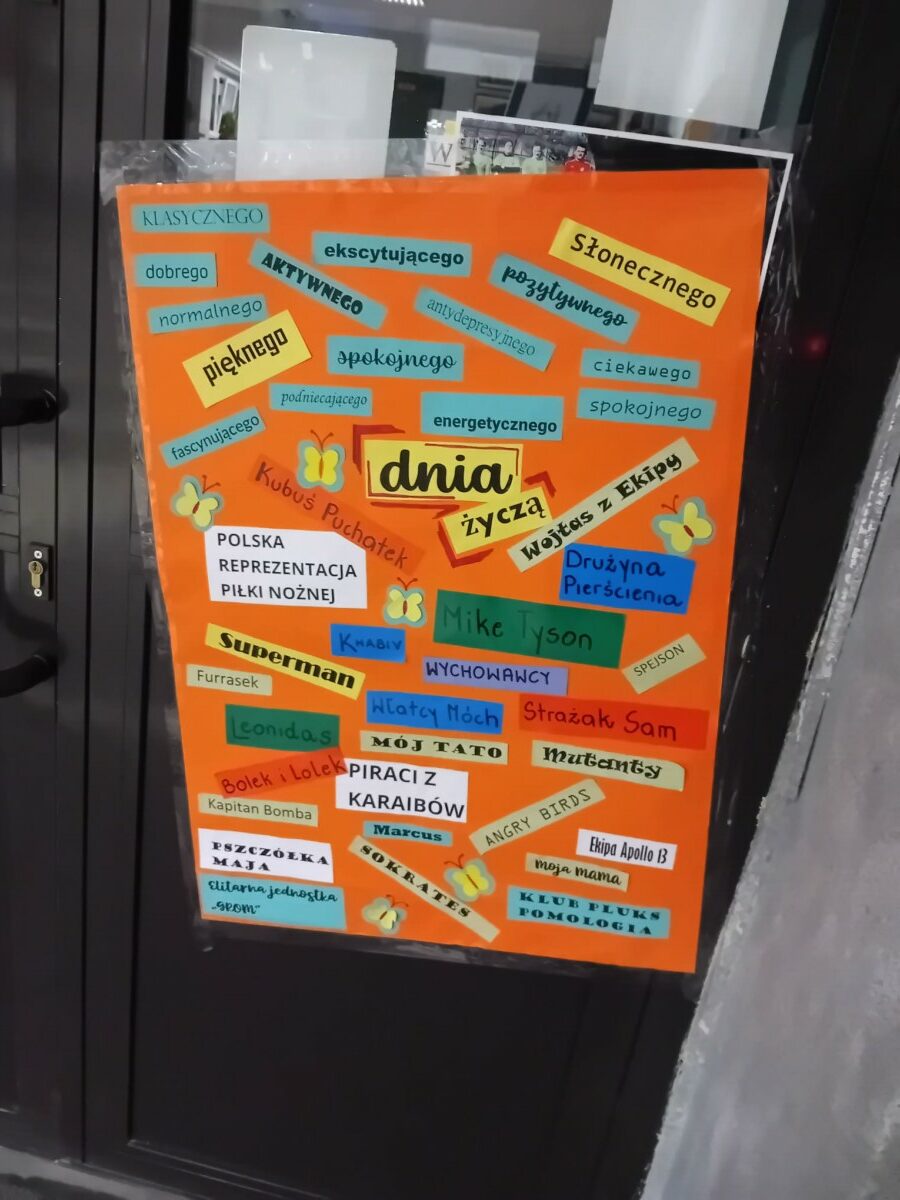 W
KLASYCZNEGO
ekscytującego
Słonecznego
dobrego
AKTYWNEGO
pozytywnego
normalnego
antydepresyjnego
pięknego
spokojnego
ciekawego
podniecającego
energetycznego
spokojnego
fascynującego
dnia
życzą
Kubuś Puchatek
Wojtas z Ekipy
POLSKA
REPREZENTACJA
PIŁKI NOŻNEJ
Drużyna
Pierścienia
Mike Tyson
Superman
KHABIV
WYCHOWAWCY
SPEJSON
Furrasek
Leonidas
Włatcy Móch
Strażak Sam
MÓJ TATO
Mutanty
Bolek i Lolek
PIRACI Z
KARAIBÓW
Kapitan Bomba
ANGRY BIRDS
Marcus
Ekipa Apollo 13
PSZCZÓŁKA
MAJA
SOKRATES
moja mama
Elitarna jednostka
„GROM"
KLUB PLUKS
POMOLOGIA